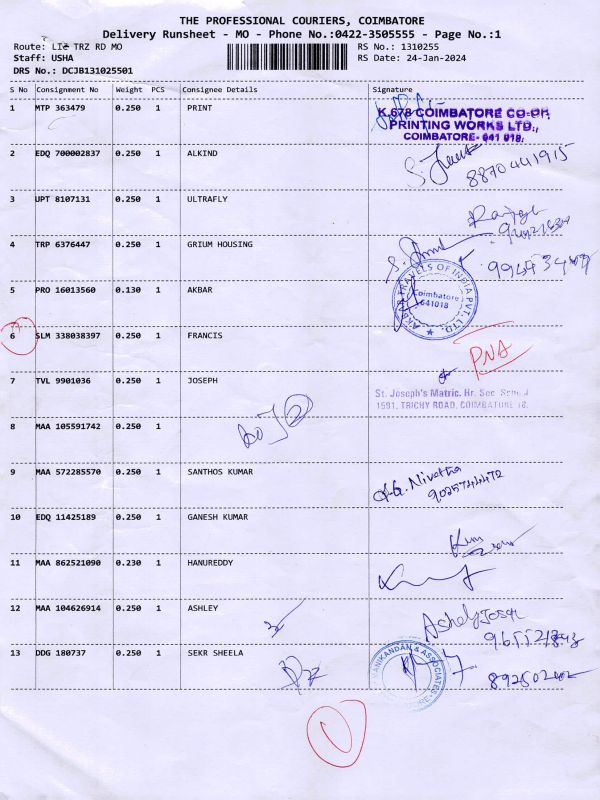 THE PROFESSIONAL COURIERS, COIMBATORE
Delivery Runsheet - MO - Phone No.:0422-3505555 - Page No.:1
Route: TRZ RD MO
RS No.: 1310255
Staff: USHA
RS Date: 24-Jan-2024
DRS No.: DCJB131025501
S No Consignment No Weight PCS Consignee Details Signature
1 MTP 363479 0.250 1 PRINT
K.678 COIMBATORE CO-OP.
PRINTING WORKS LTD.,
COIMBATORE- 641 018.
2 EDQ 700002837 0.250 1 ALKIND
8870441915
3 UPT 8107131 0.250 1 ULTRAFLY
4 TRP 6376447 0.250 1 GRIUM HOUSING
5 PRO 16013560 0.130 1 AKBAR
AKBAR TRAVELS OF INDIA PVT. LTD.
Coimbatore
641018
6 SLM 338038397 0.250 1 FRANCIS
PNA
7 TVL 9901036 0.250 1 JOSEPH
St. Joseph's Matric. Hr. Sec. School
1591, TRICHY ROAD, COIMBATORE 18.
8 MAA 105591742 0.250 1
9 MAA 572285570 0.250 1 SANTHOS KUMAR
Nivetha
9025744472
10 EDQ 11425189 0.250 1 GANESH KUMAR
11 MAA 862521090 0.230 1 HANUREDDY
12 MAA 104626914 0.250 1 ASHLEY
13 DDG 180737 0.250 1 SEKR SHEELA
MANIKANDAN & ASSOCIATES